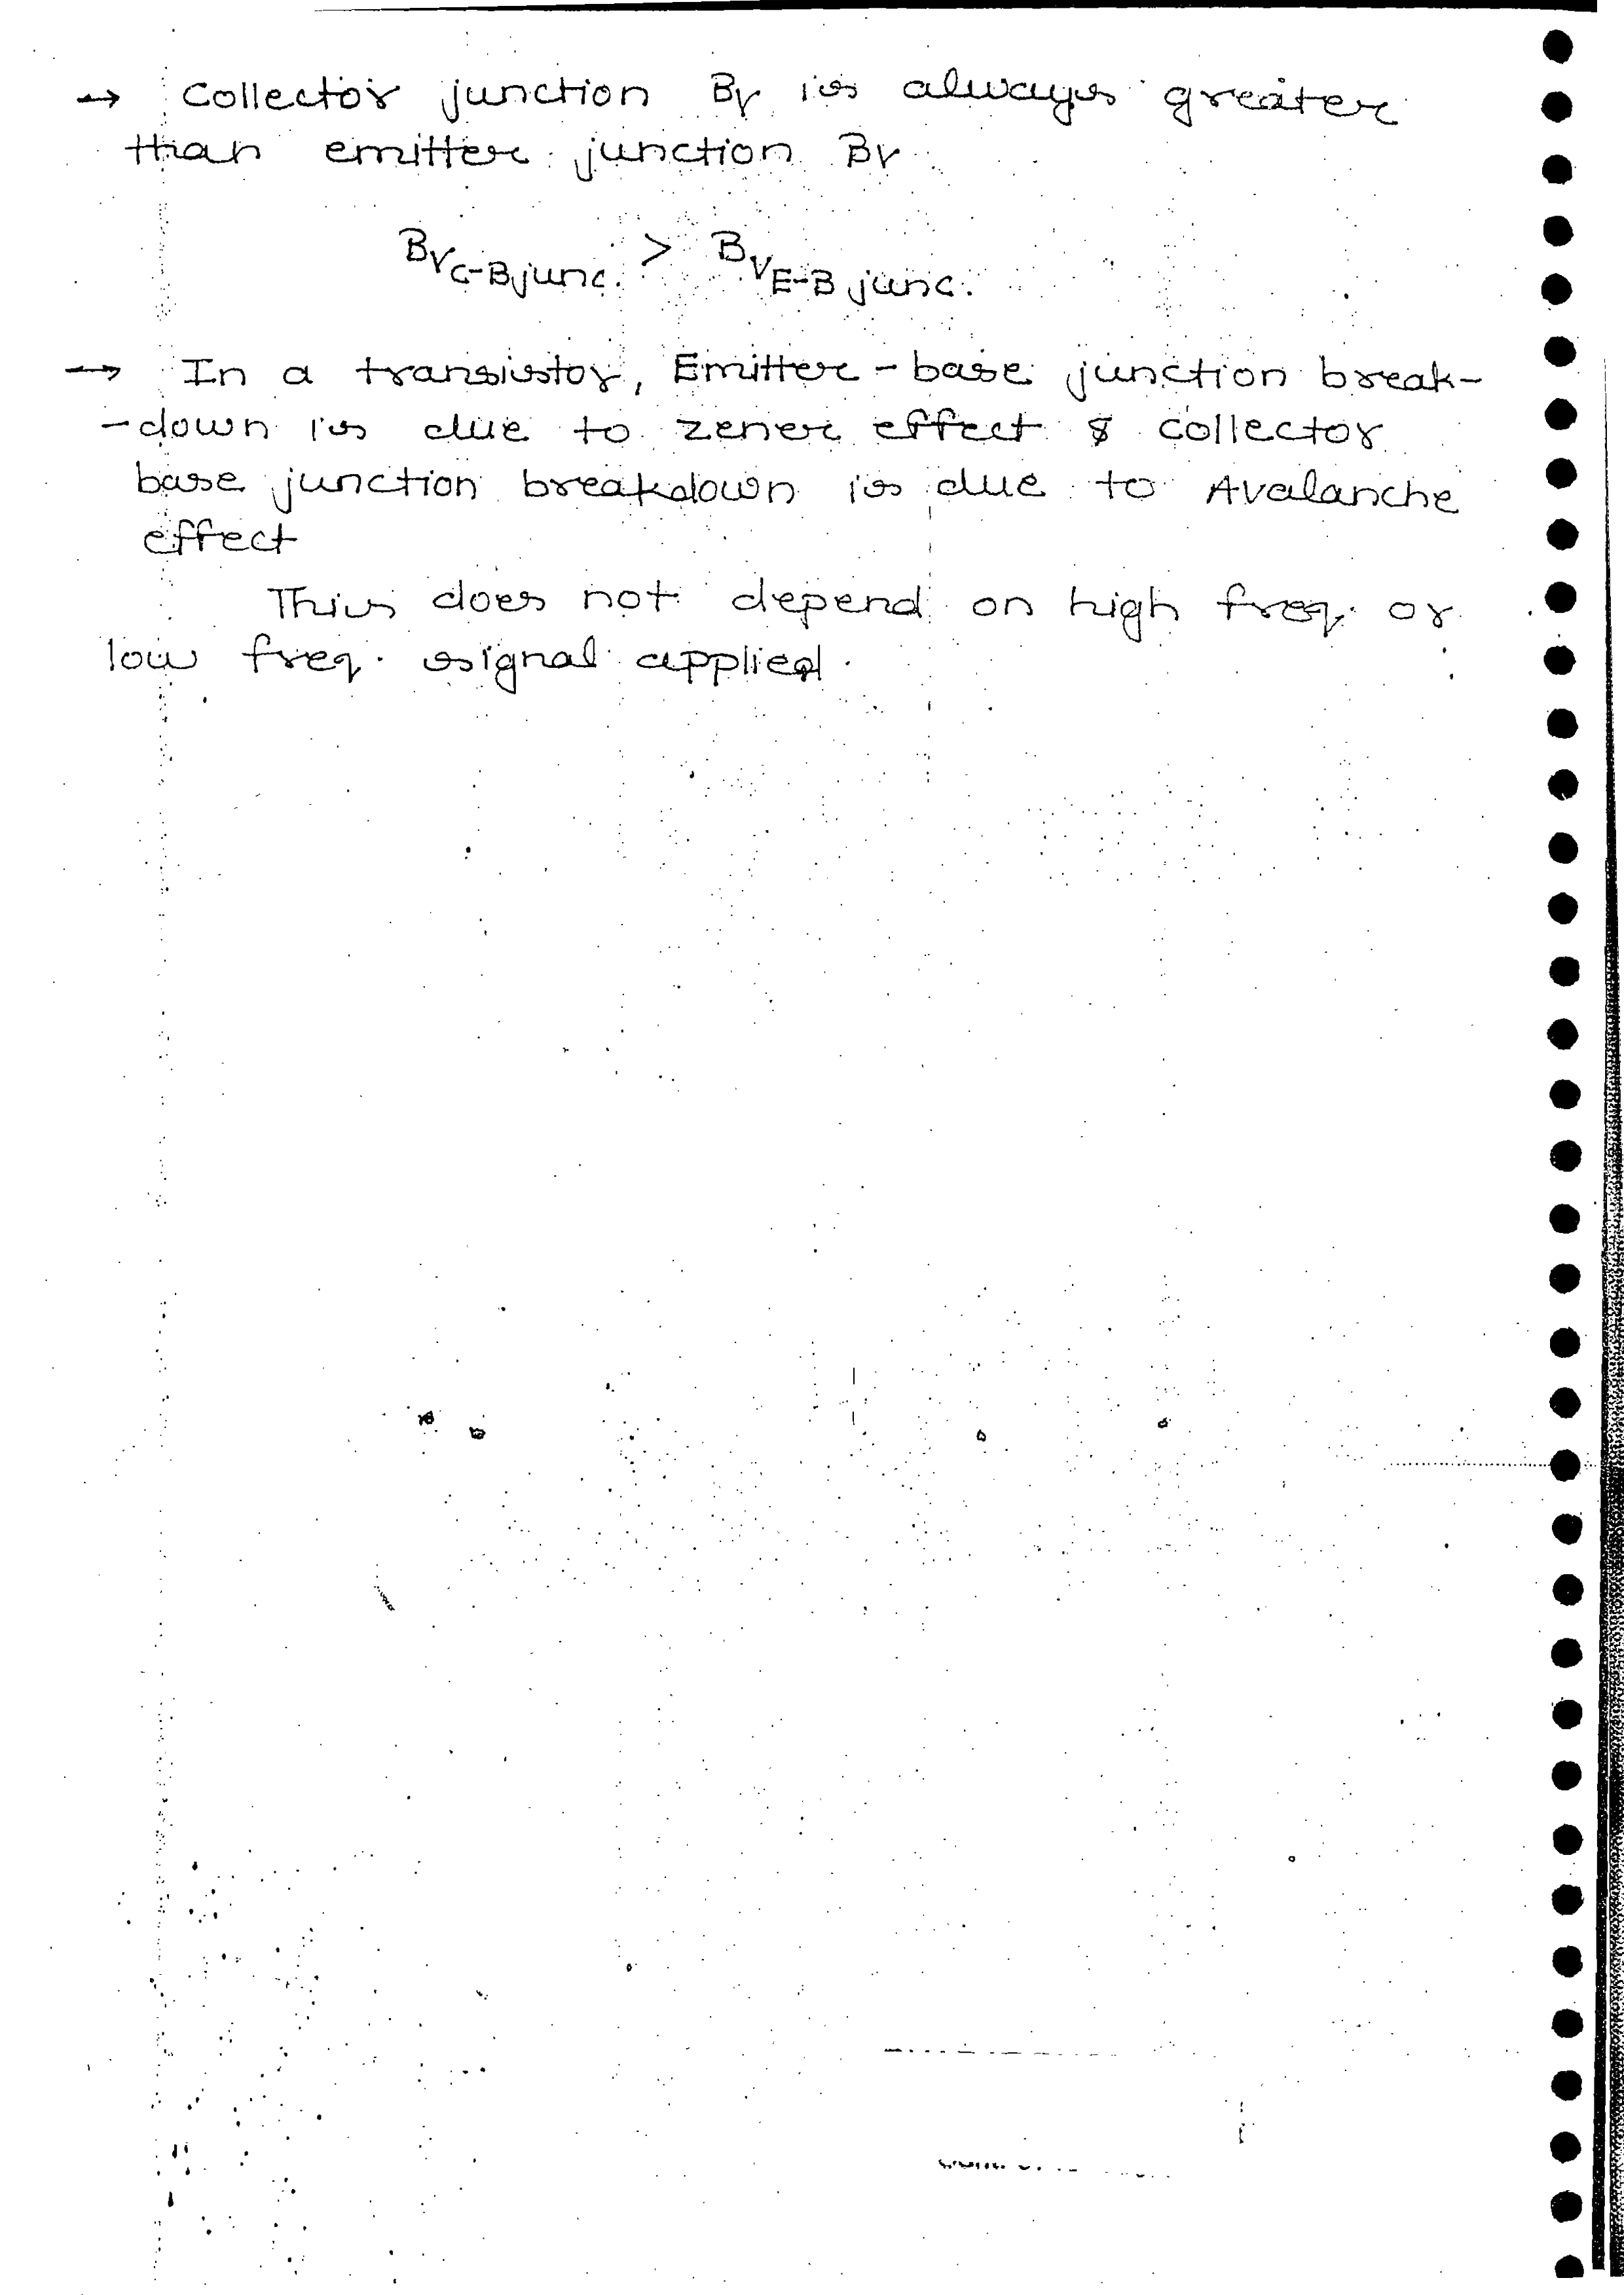 → Collector junction BV is always greater
than emitter junction BV
BV C-B junc. > BV E-B junc.
→ In a transistor, Emitter-base junction break-
-down is due to zener effect & collector
base junction breakdown is due to Avalanche
effect
This does not depend on high freq. or
low freq. signal applied.